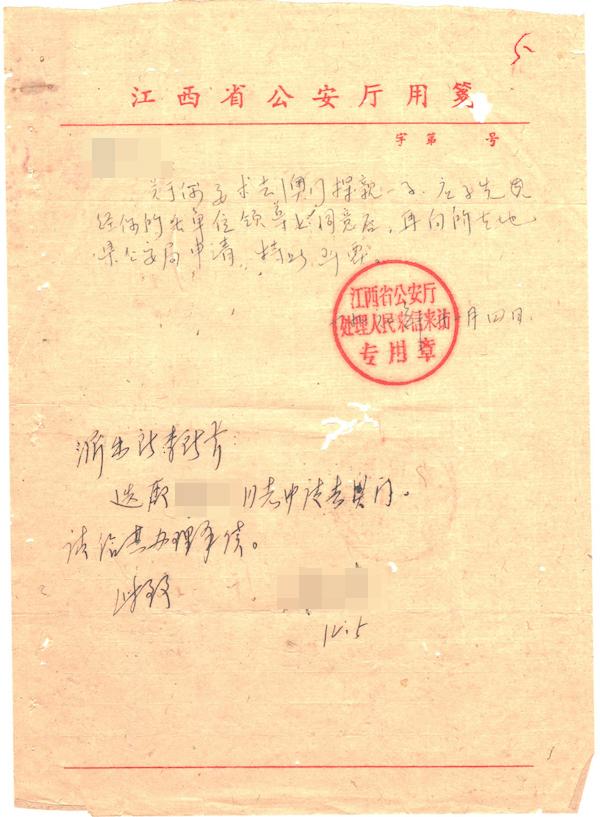 5
江西省公安厅用笺
字 第 号
关于你要求去澳门探亲一事,应事先
经你所在单位领导上同意后,再向所在地
县公安局申请,特此函罢。
江西省公安厅
处理人民来信来访
专用章
月四日
同志申请去澳门。
请给其办理手续。
此致
12.5